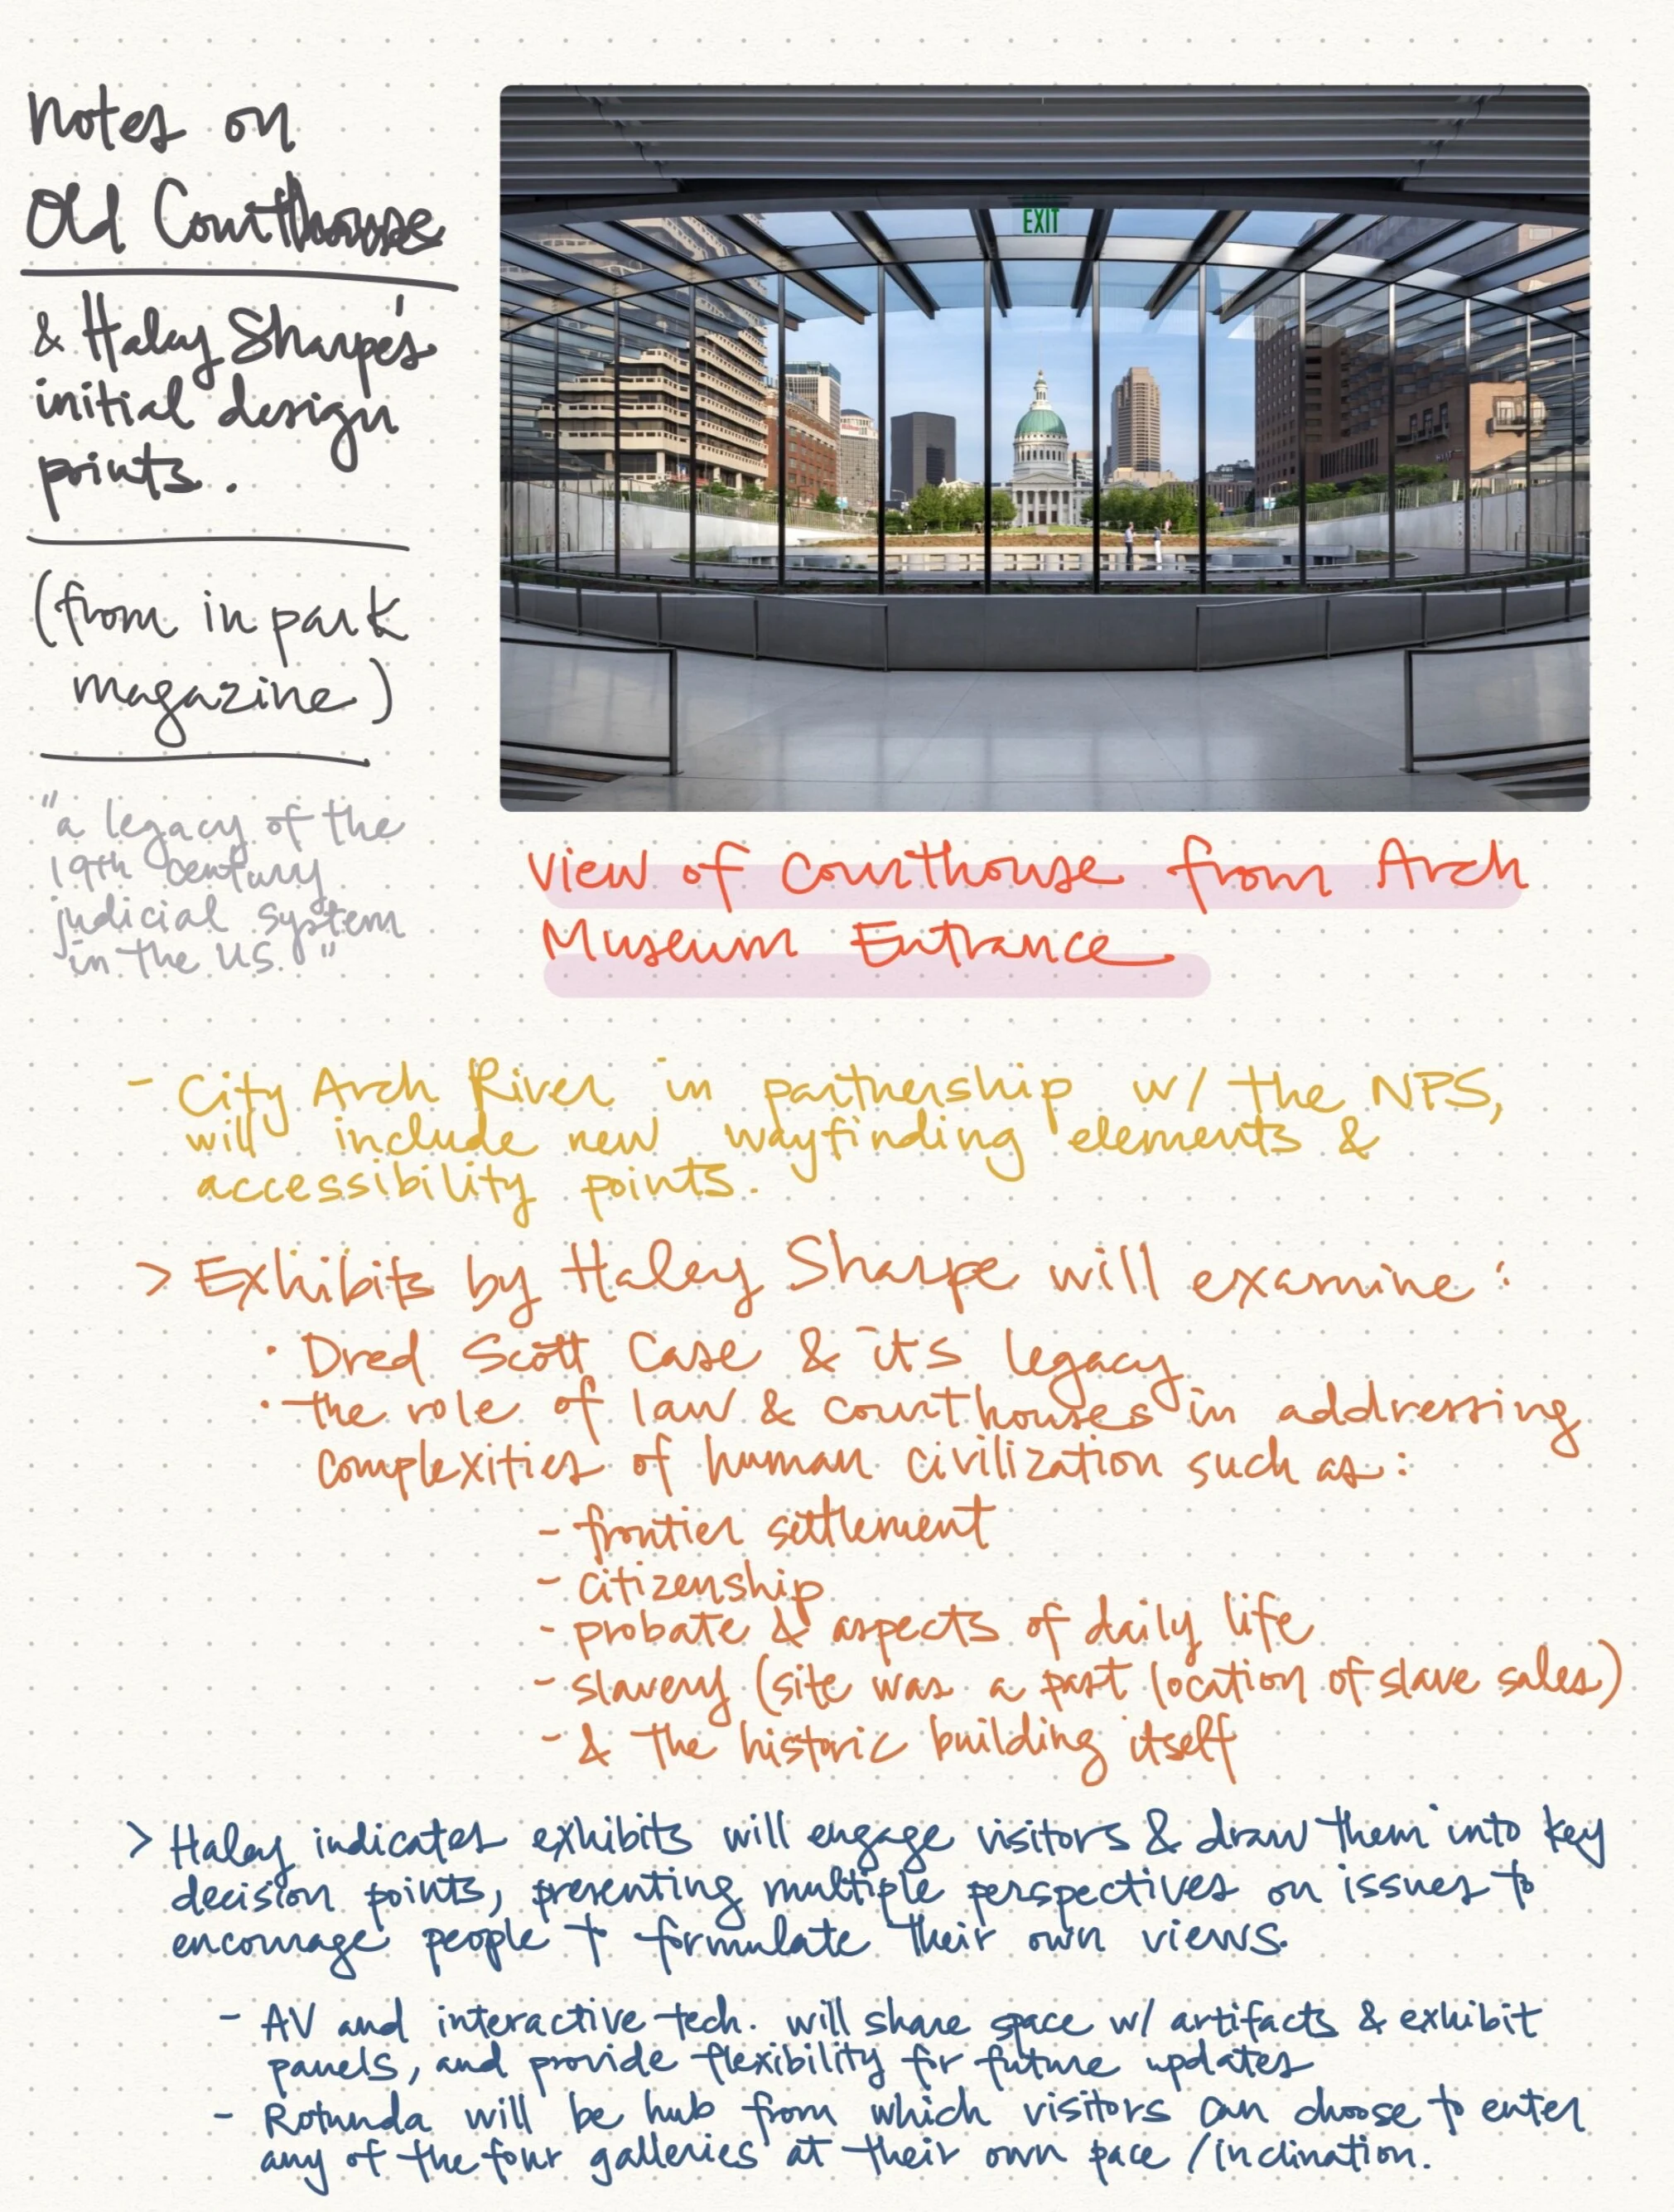 Notes on
Old Courthouse
& Haley Sharpe's
initial design
points.
(from in park
magazine)
"a legacy of the
19th century
judicial system
in the US."
EXIT
View of Courthouse from Arch
Museum Entrance
- City Arch River in partnership w/ the NPS,
will include new wayfinding elements &
accessibility points.
> Exhibits by Haley Sharpe will examine:
· Dred Scott Case & its legacy
· the role of law & courthouses in addressing
complexities of human civilization such as:
- frontier settlement
- citizenship
- probate & aspects of daily life
- slavery (site was a past location of slave sales)
- & the historic building itself
> Haley indicates exhibits will engage visitors & draw them into key
decision points, presenting multiple perspectives on issues to
encourage people to formulate their own views.
- AV and interactive tech. will share space w/ artifacts & exhibit
panels, and provide flexibility for future updates
- Rotunda will be hub from which visitors can choose to enter
any of the four galleries at their own pace/inclination.